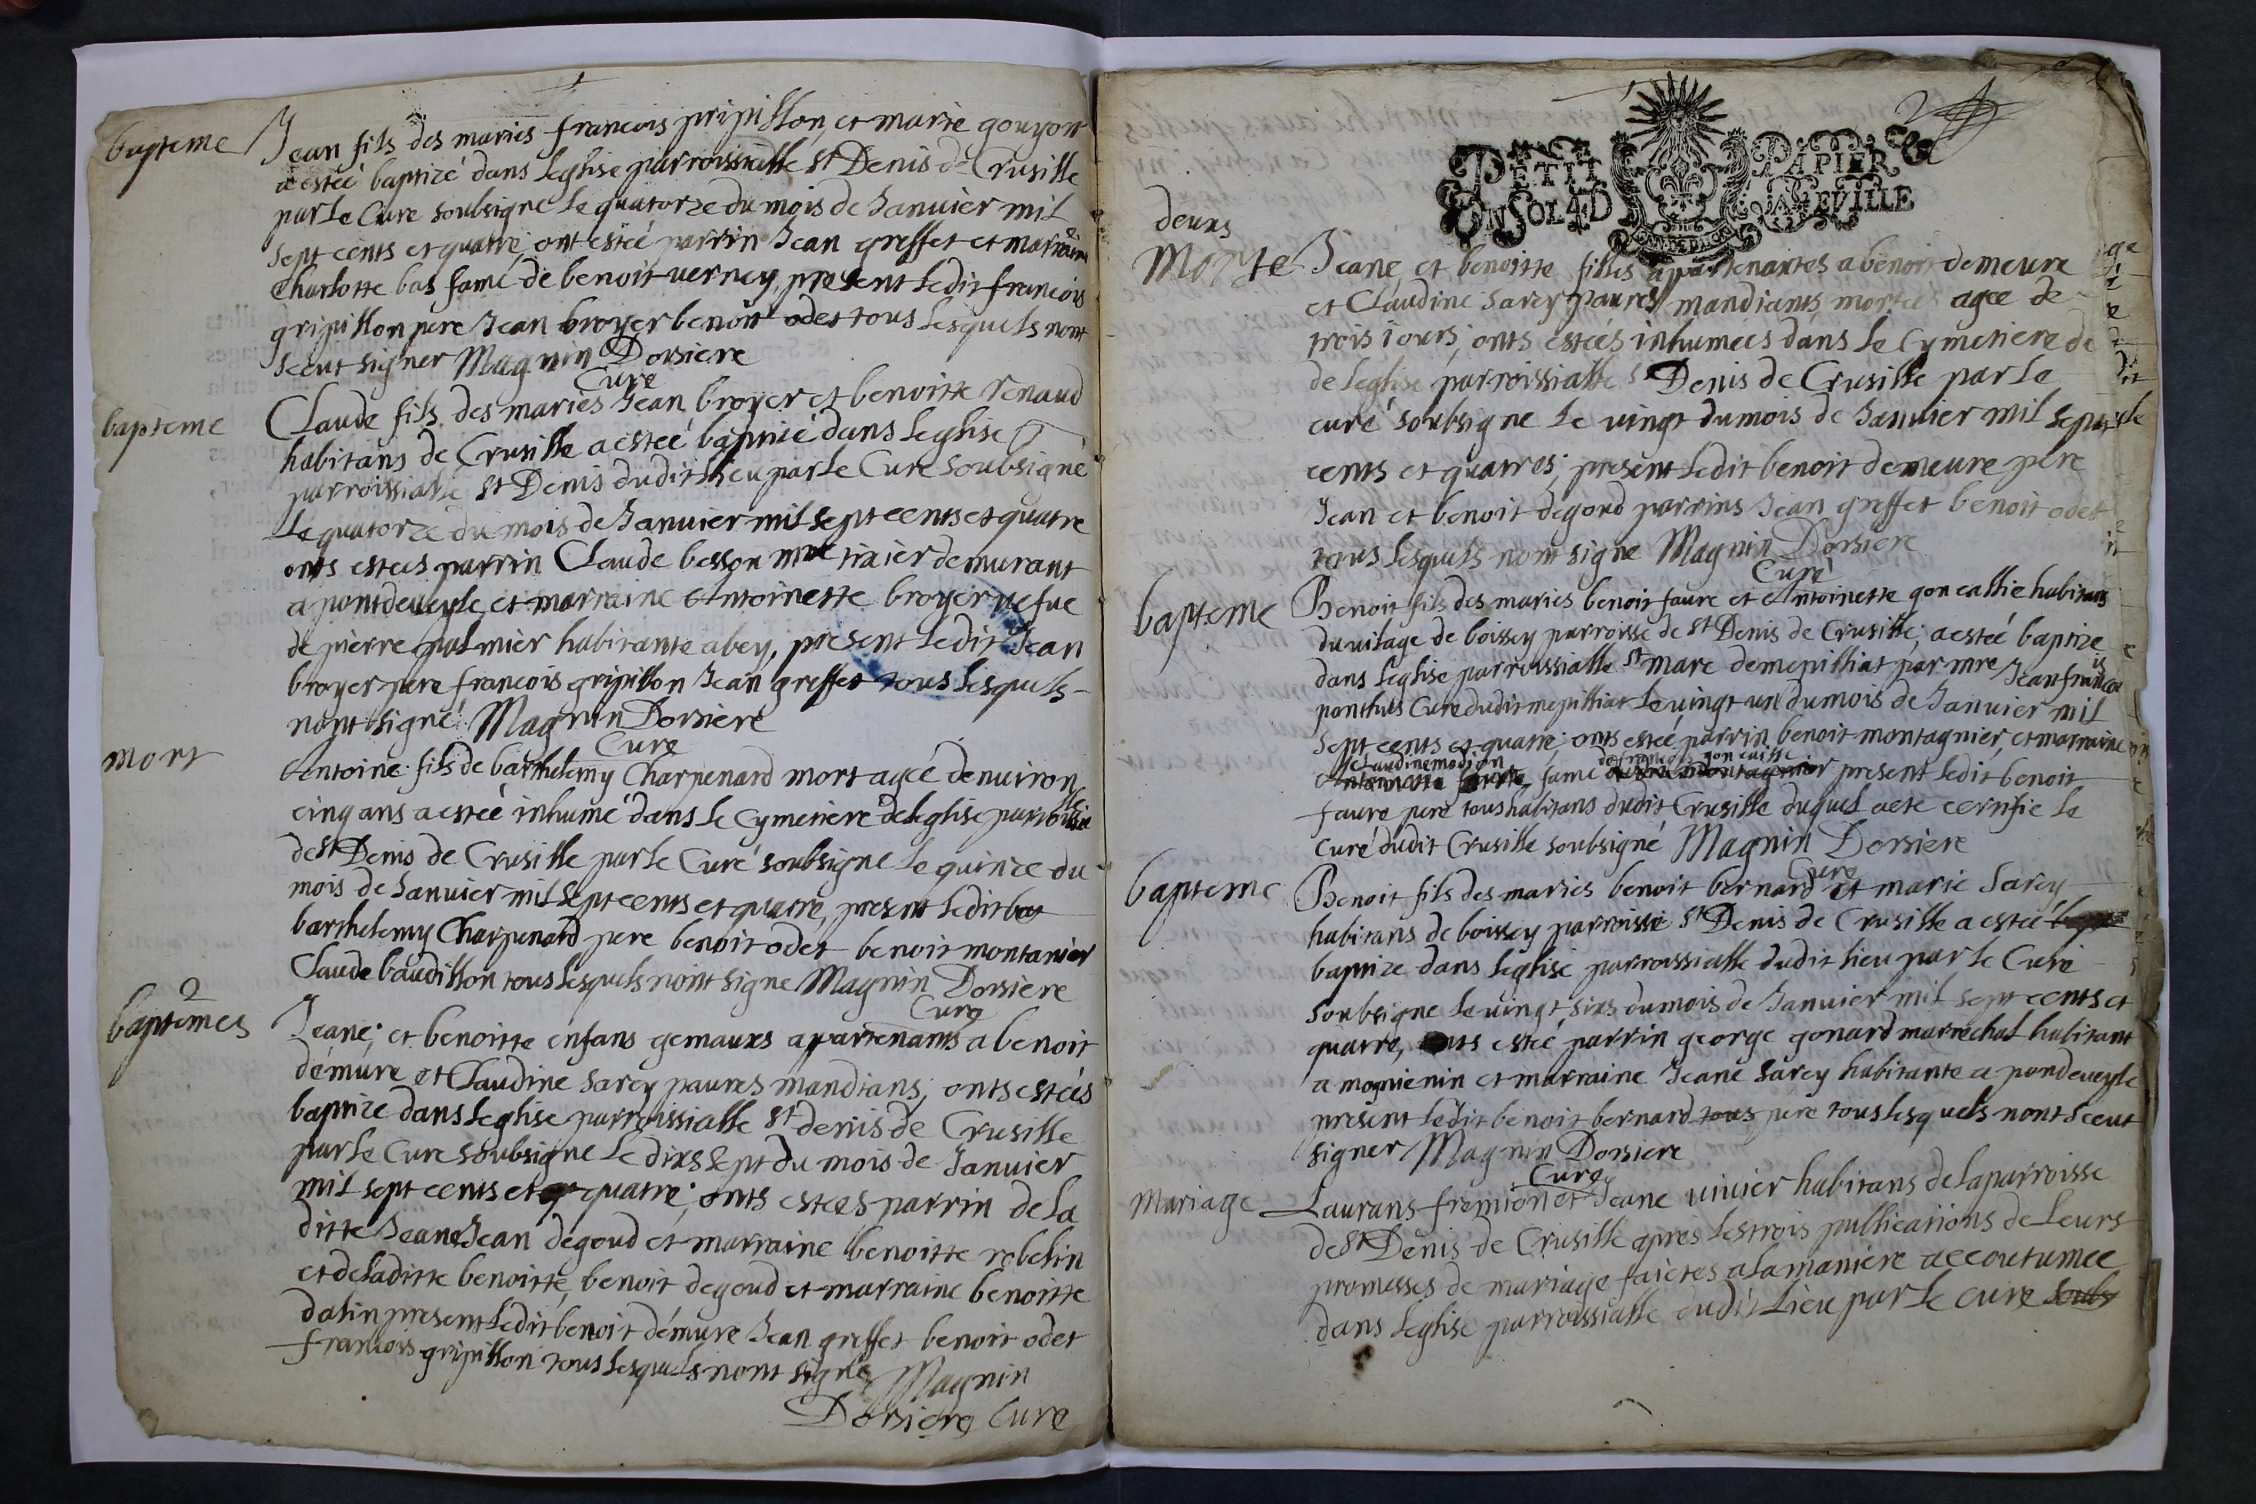 bapteme
Jean fils des maries francois pripillon et marie gouyon
a esteé baptizé dans leglise parroissialle St Denis de Crusille
par le Cure soubsigne le quatorze du mois de Janvier mil
sept cents et quatre, ont esteé parrin Jean greffet et marraine
Charlotte bas fame de benoit verney, present ledit francois
gripillon pere Jean broyer benoit odet tous lesquels nont
sceut signer Magnin Dorsiere
Cure
bapteme
Claude fils des maries Jean broyer et benoitte renaud
habitans de Crusille a esteé baptizé dans leglise
parroissialle St Denis dudit lieu par le Cure soubsigné
Le quatorze du mois de Janvier mil sept cents et quatre
onts estees parrin Claude besson mre tixier demurant
a pontdeveyle et marraine Antoinette broyer vefve
de pierre palmier habitante abey, present ledit Jean
broyer pere francois gripillon Jean greffet tous lesquels
nont signé Magnin Dorsiere
Cure
mort
Antoine fils de barthelemy Charpenard mort ageé denuiron
cinq ans a esteé inhumé dans le Cymetiere de leglise parroissialle
de St Denis de Crusille par le Curé soubsigne le quinze du
mois de Janvier mil sept cents et quatre, present ledit bat
barthelemy Charpenard pere benoit odet benoit montanier
Claude baudillon tous lesquels nont signe Magnin Dorsiere
Cure
2
baptemes
Jeane; et benoitte enfans gemaux apartenants a benoit
démure et Claudine sarcy paures mandians; onts estéés
baptize dans leglise parroissialle St denis de Crusille
par le Cure soubsigne le dixsept du mois de Janvier
mil sept cents et q quatre; onts estees parrin de la
ditte Jeane Jean degoud et marraine benoitte robelin
et de laditte benoitte, benoit degoud et marraine benoitte
dalin present ledit benoit démure Jean greffet benoit odet
francois gripillon tous lesquels nont signé Magnin
Dorsiere Cure
2
PETIT PAPIER
UN SOL 4 D LA FEVILLE
deuxs
Morte
Jeane et benoitte filles apartenantes a benoit demeure
et Claudine sarcy paures mandiants, mortes agee de
trois iours; onts estéés inhumées dans le Cymetiere de
de leglise parroissialle St Denis de Crusille par le
curé soubsigne le vingt du mois de Janvier mil sept
cents et quatres; present ledit benoit demeure pere
Jean et benoit degoud parrins Jean greffet benoit odet
tous lesquels nont signe Magnin Dorsiere
Curé
bapteme
Benoit fils des maries benoit faure et Antoinette goncallie habitans
du vilage de boissey parroisse de St Denis de Crusille; a esteé baptize
dans leglise parroissialle St marc demepilliat par mre Jean francois
ponthus Cure dudit mepilliat le vingt un du mois de Janvier mil
sept cents et quatre; onts esteé parrin benoit montagnier, et marraine
Claudine morion de francois goncallie
fame present ledit benoit
faure pere tous habitans dudit Crusille duquel acte certifie le
curé dudit Crusille soubsigné Magnin Dorsiere
Cure
bapteme
Benoit fils des maries benoit bernard et marie sarcy
habitans de boissey parroisse St Denis de Crusille a esteé
baptize dans leglise parroissialle dudit lieu par le Curé
soubsigne le vingt sixs du mois de Janvier mil sept cents et
quatre, onts esteé parrin george gonard marrechal habitant
a mognienin et marraine Jeane sarcy habitante a pondeveyle
present ledit benoit bernard tous pere tous lesquels nont sceut
signer Magnin Dorsiere
Cure
Mariage
Laurans fremion et Jeane vivier habitans de la parroisse
de St Denis de Crusille apres les trois publications de leurs
promesses de mariage faictes a la maniere accoutumee
dans leglise parroissialle dudit lieu par le cure soubs